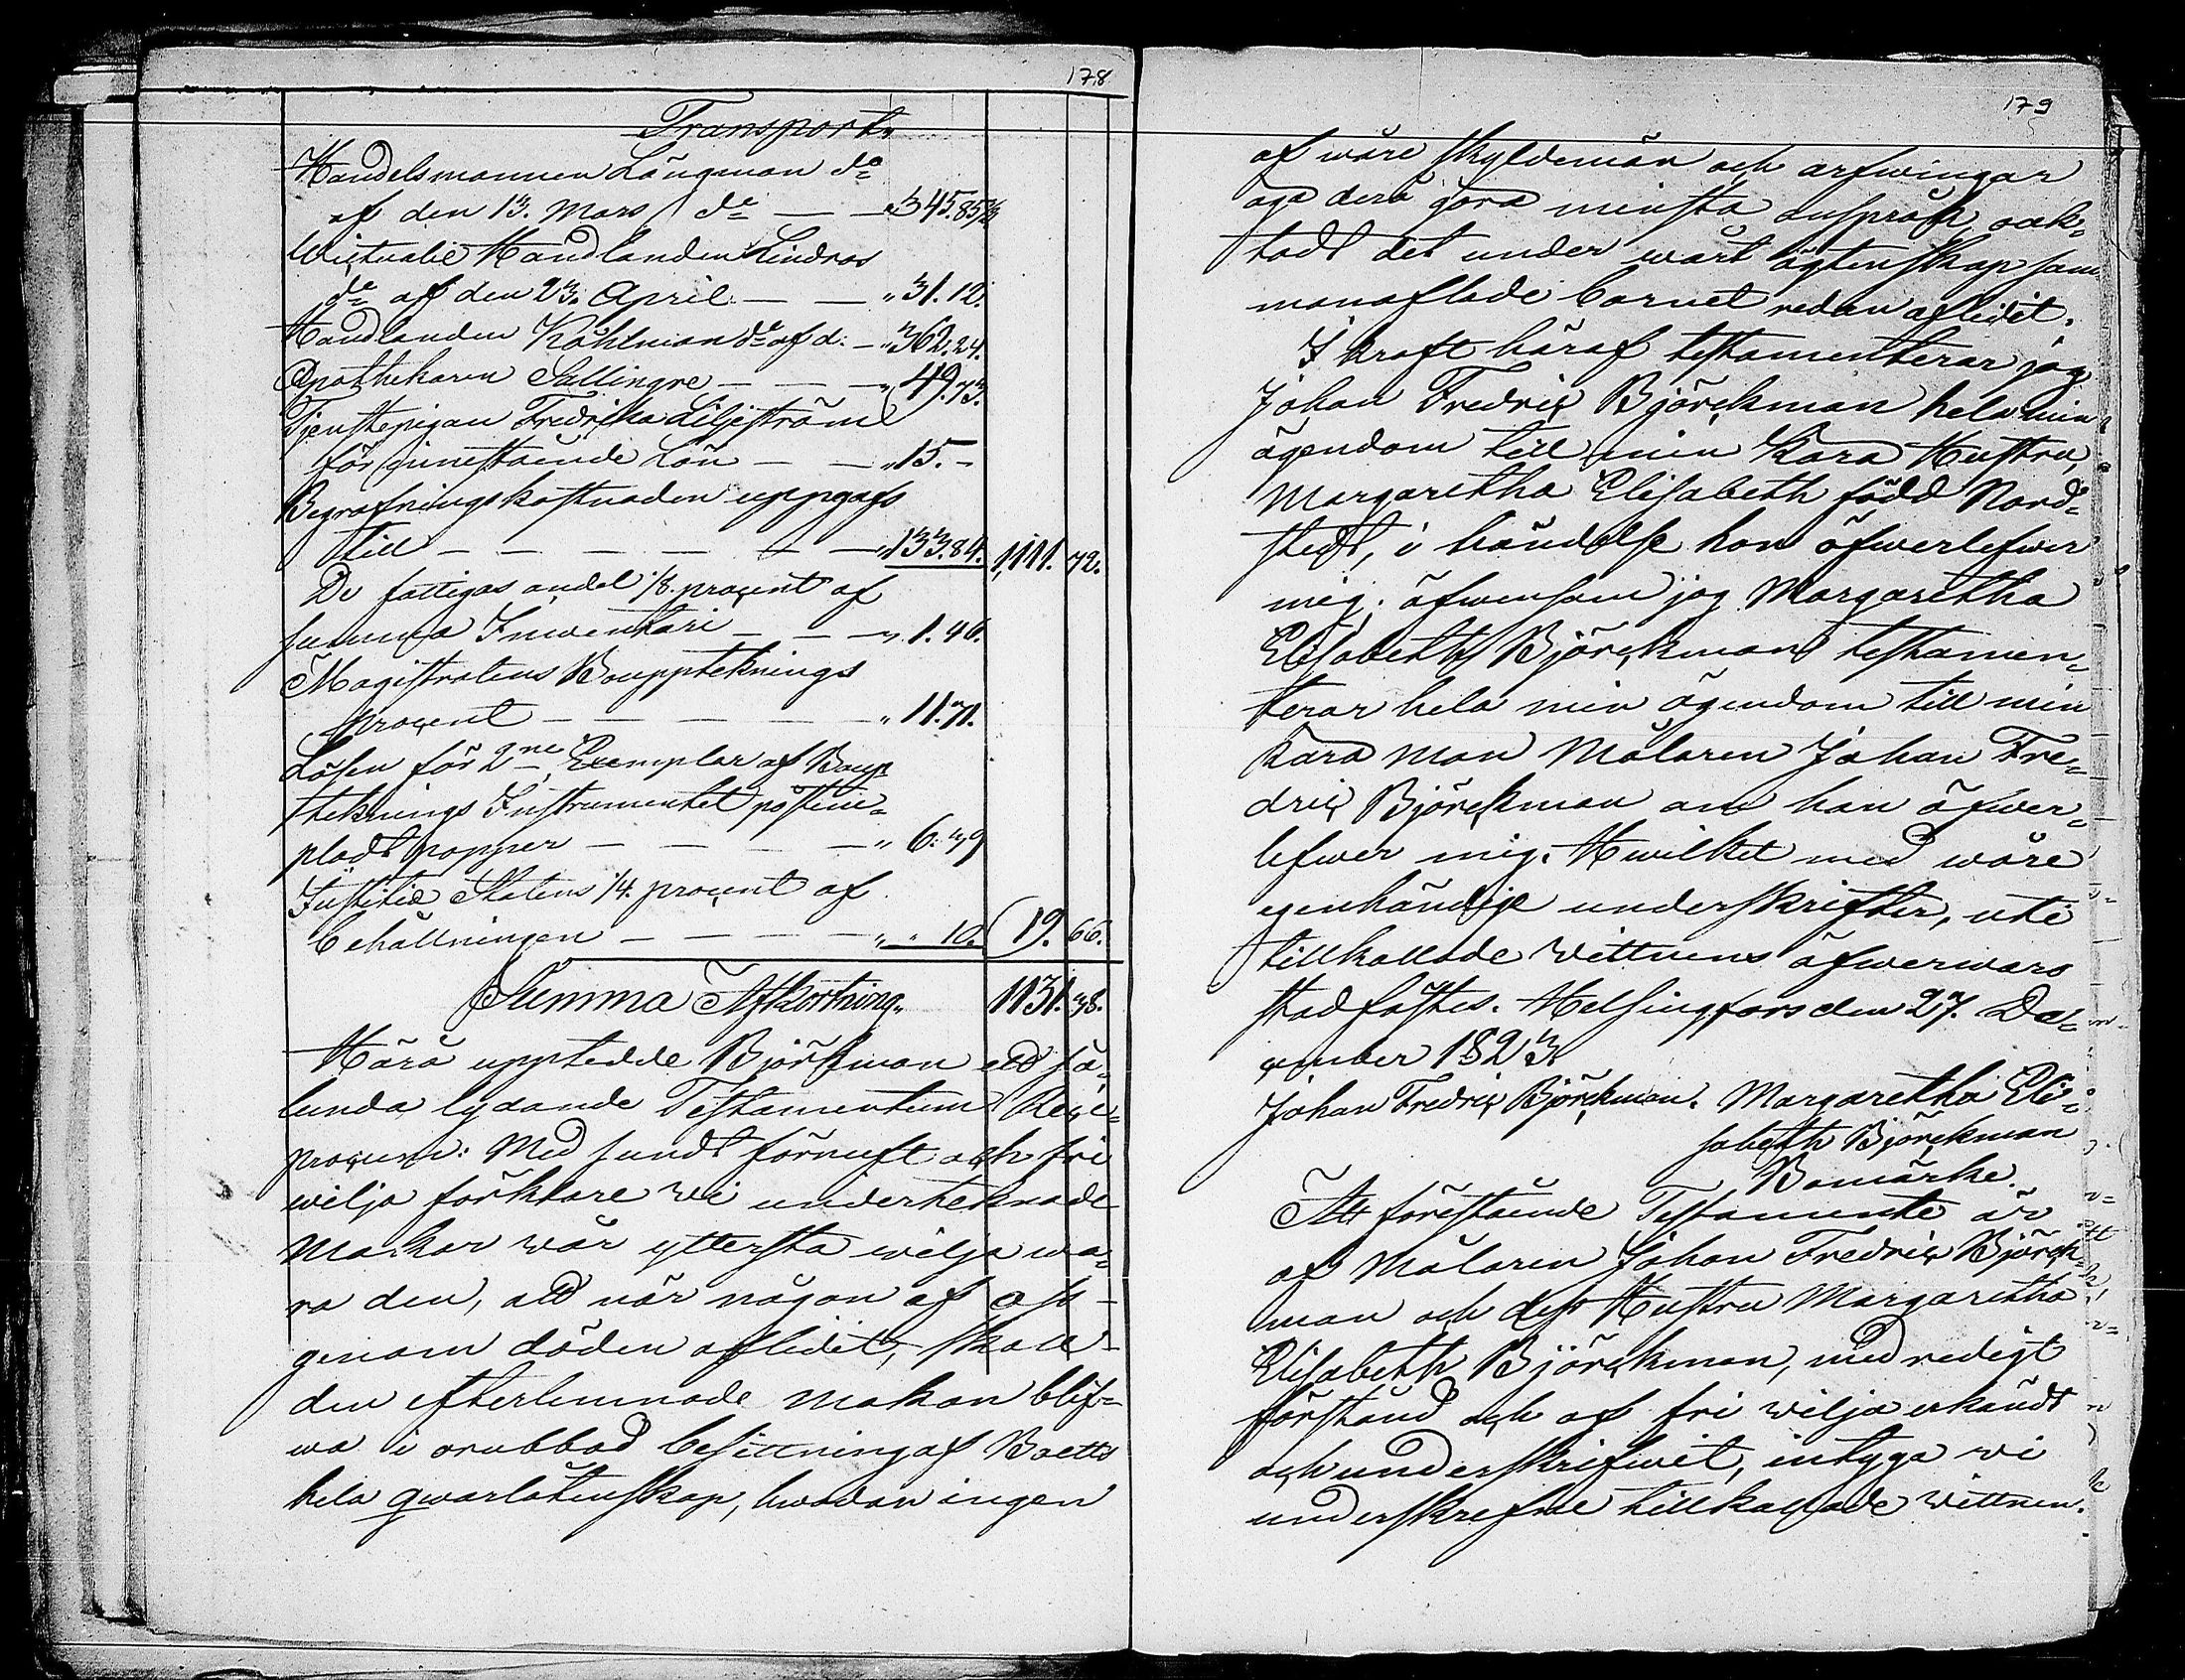 178
Transport
Handelsmannen Långman do
af den 13. Mars do — — 345.85 2/3
Wictualie Handlanden Lindros
do af den 23. April — — " 31.12.
Handlanden Kåhlman do af d: — " 362.24.
Apothekaren Sallingre — — — " 49.73.
Tjenstepigan Fredrika Liljeström
för innestående Lön — — " 15. -
Begrafningskostnaden uppgafs
till — — — — — — " 133.84. 1,111. 72.
De fattigas andel 1/8. procent af
summa Inventari — — — " 1.46.
Magistratens Bouppteknings
procent — — — — — " 11.71.
Lösen för 2ne Exemplar af Boupp
teknings Instrumentet på stem=
pladt papper — — — — " 6.49
Justitie Statens 1/4. procent af
behållningen — — — — " " 10. 19. 66.
Summa Afkortning 1131. 38.
Härå upptedde Björkman ett så=
lunda lydande Testamentum Reci=
procum: Med sundt förnuft och fri
wilja förklare wi undertecknade
Makar wår yttersta wilja wa=
ra den, att när någon af oss
genom döden aflidit, skall
den efterlemnade makan blif=
wa i orubbad besittning af Boetts
hela qwarlåtenskap, hwadan ingen
179
af wåre skyldemän och arfwingar
äga derå göra minsta anspråk, oak=
tadt det under wårt ägtenskap sam
manaflade barnet redan aflidit.
I kraft häraf testamenterar jag
Johan Fredric Björckman hela min
ägendom till min Kära Hustru,
Margaretha Elisabeth född Nord=
stedt, i händelse hon öfwerlefwer
mig; äfwensom jag Margaretha
Elisabeth Björckman testamen=
terar hela min ägendom till min
Kära man Målaren Johan Fre=
dric Björckman om han öfwer=
lefwer mig. Hwilket med wåre
egenhändige underskrifter, uti
tillkallade Wittnens öfwerwaro
stadfästes. Helsingfors den 27. De=
cember 1823.
Johan Fredric Björckman. Margaretha Eli=
sabeth Björckman
Bomärke.
Att förestående Testamente är
af Målaren Johan Fredric Björck=
man och dess Hustru Margaretha
Elisabeth Björckman, med redigt
förstånd och af fri wilja erkändt
och underskrifwit, intyga wi
underskrefne tillkallade Wittnen.